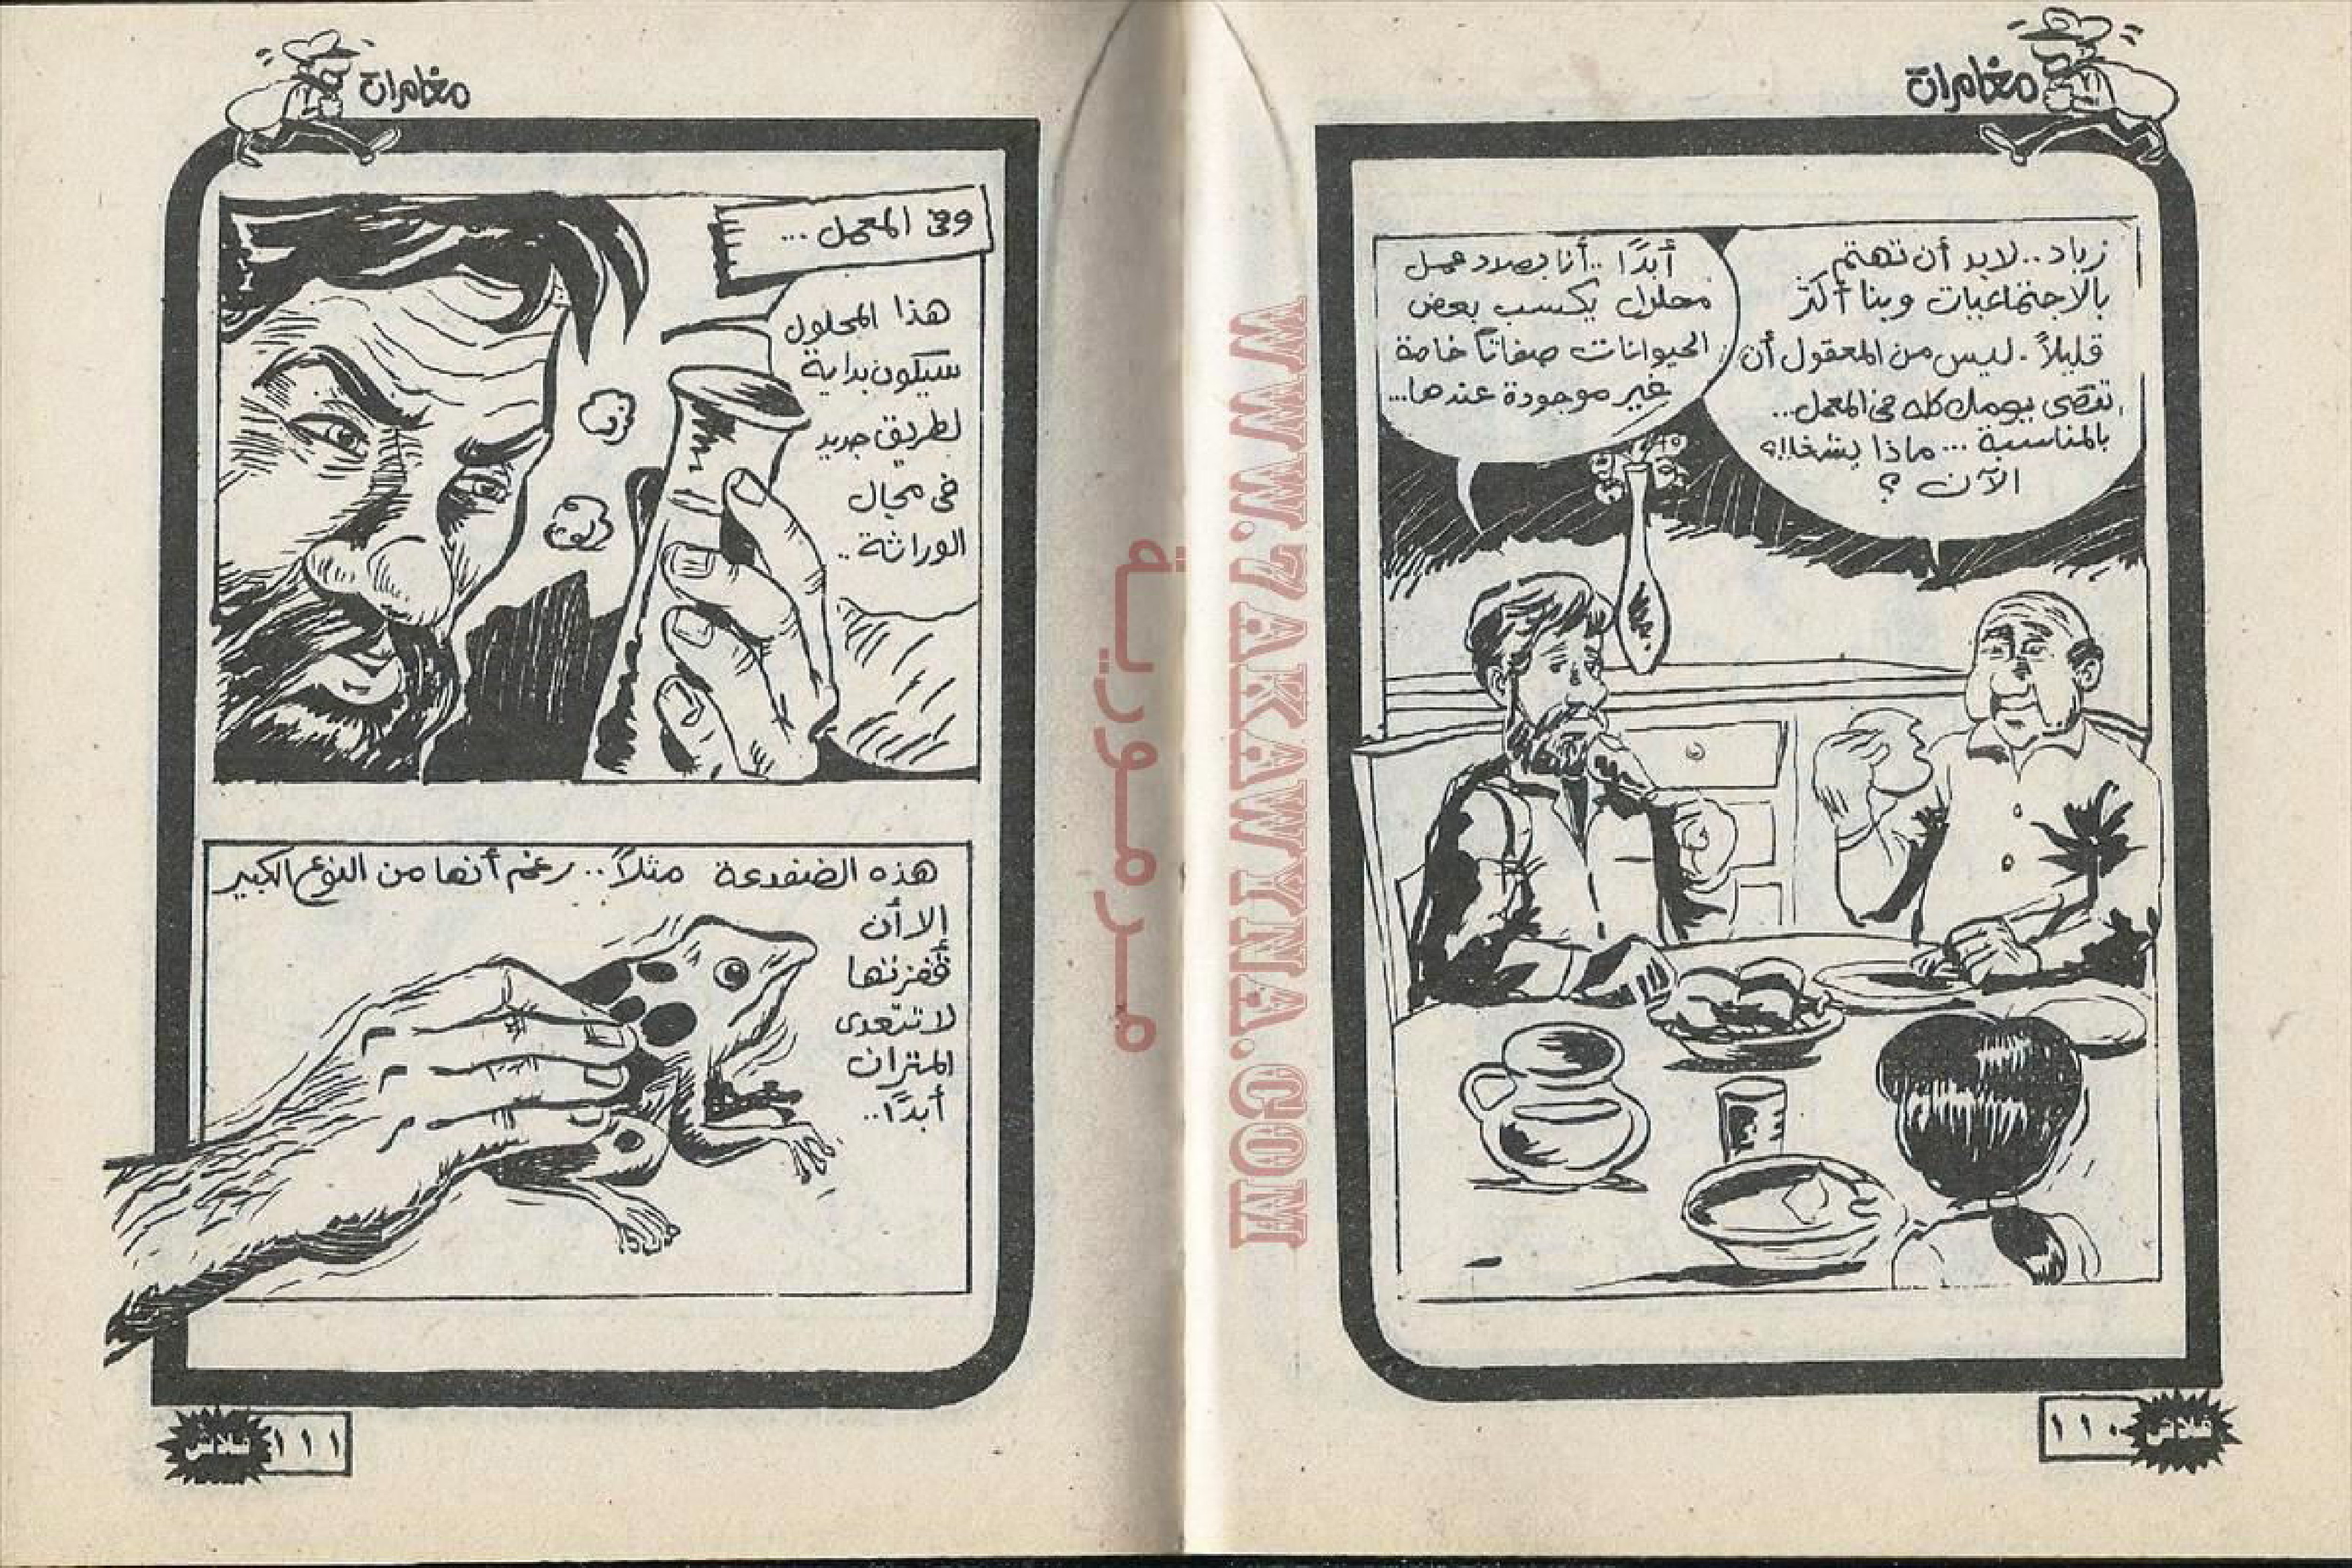 مغامرات
زياد.. لابد أن تهتم
بالاجتماعيات وبنا أكثر
قليلاً. ليس من المعقول أن
تقضى يومك كله فى المعمل..
بالمناسبة... ماذا يشغلك
الآن؟
أبدًا.. أنا بصدد عمل
محلول يكسب بعض
الحيوانات صفاتاً خاصة
غير موجودة عندها...
١١٠
فلاش
مغامرات
وفى المعمل...
هذا المحلول
سيكون بداية
لطريق جديد
فى مجال
الوراثة..
هذه الضفدعة مثلاً.. رغم أنها من النوع الكبير
إلا أن
قفزتها
لا تتعدى
المتران
أبدًا..
١١١
فلاش
مرمورية
WWW.7AKAWYNA.COM